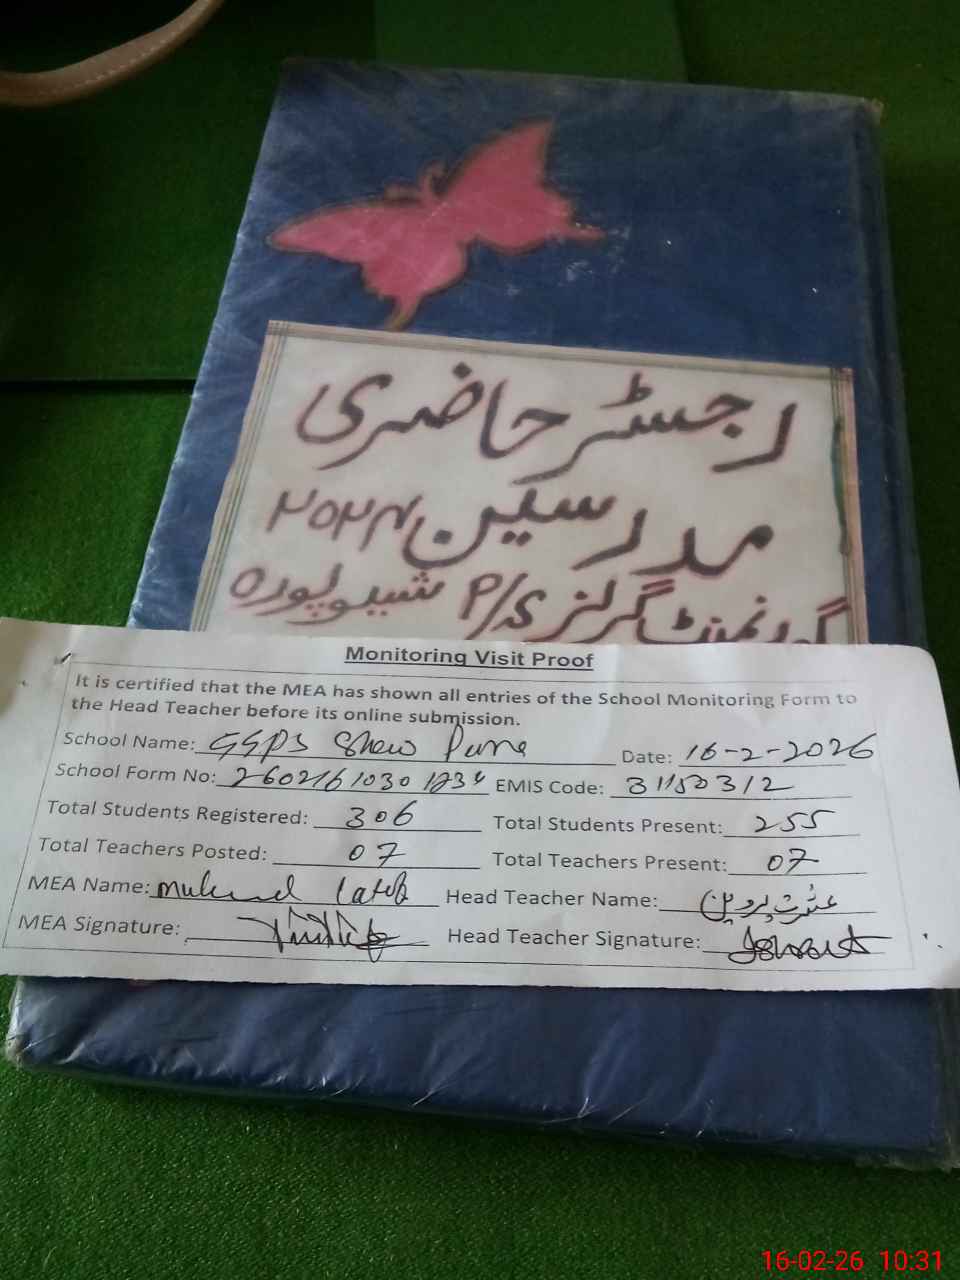 رجسٹر حاضری
مدرسین ۲۰۲۴
گورنمنٹ گرلز ی/P شیوپورہ
Monitoring Visit Proof
It is certified that the MEA has shown all entries of the School Monitoring Form to
the Head Teacher before its online submission.
School Name: GGPS Shew Pura Date: 16-2-2026
School Form No: EMIS Code: 31150312
Total Students Registered: 306 Total Students Present: 255
Total Teachers Posted: 07 Total Teachers Present: 07
MEA Name: Head Teacher Name: عشرت پروین
MEA Signature: Head Teacher Signature: Ishrat
16-02-26 10:31